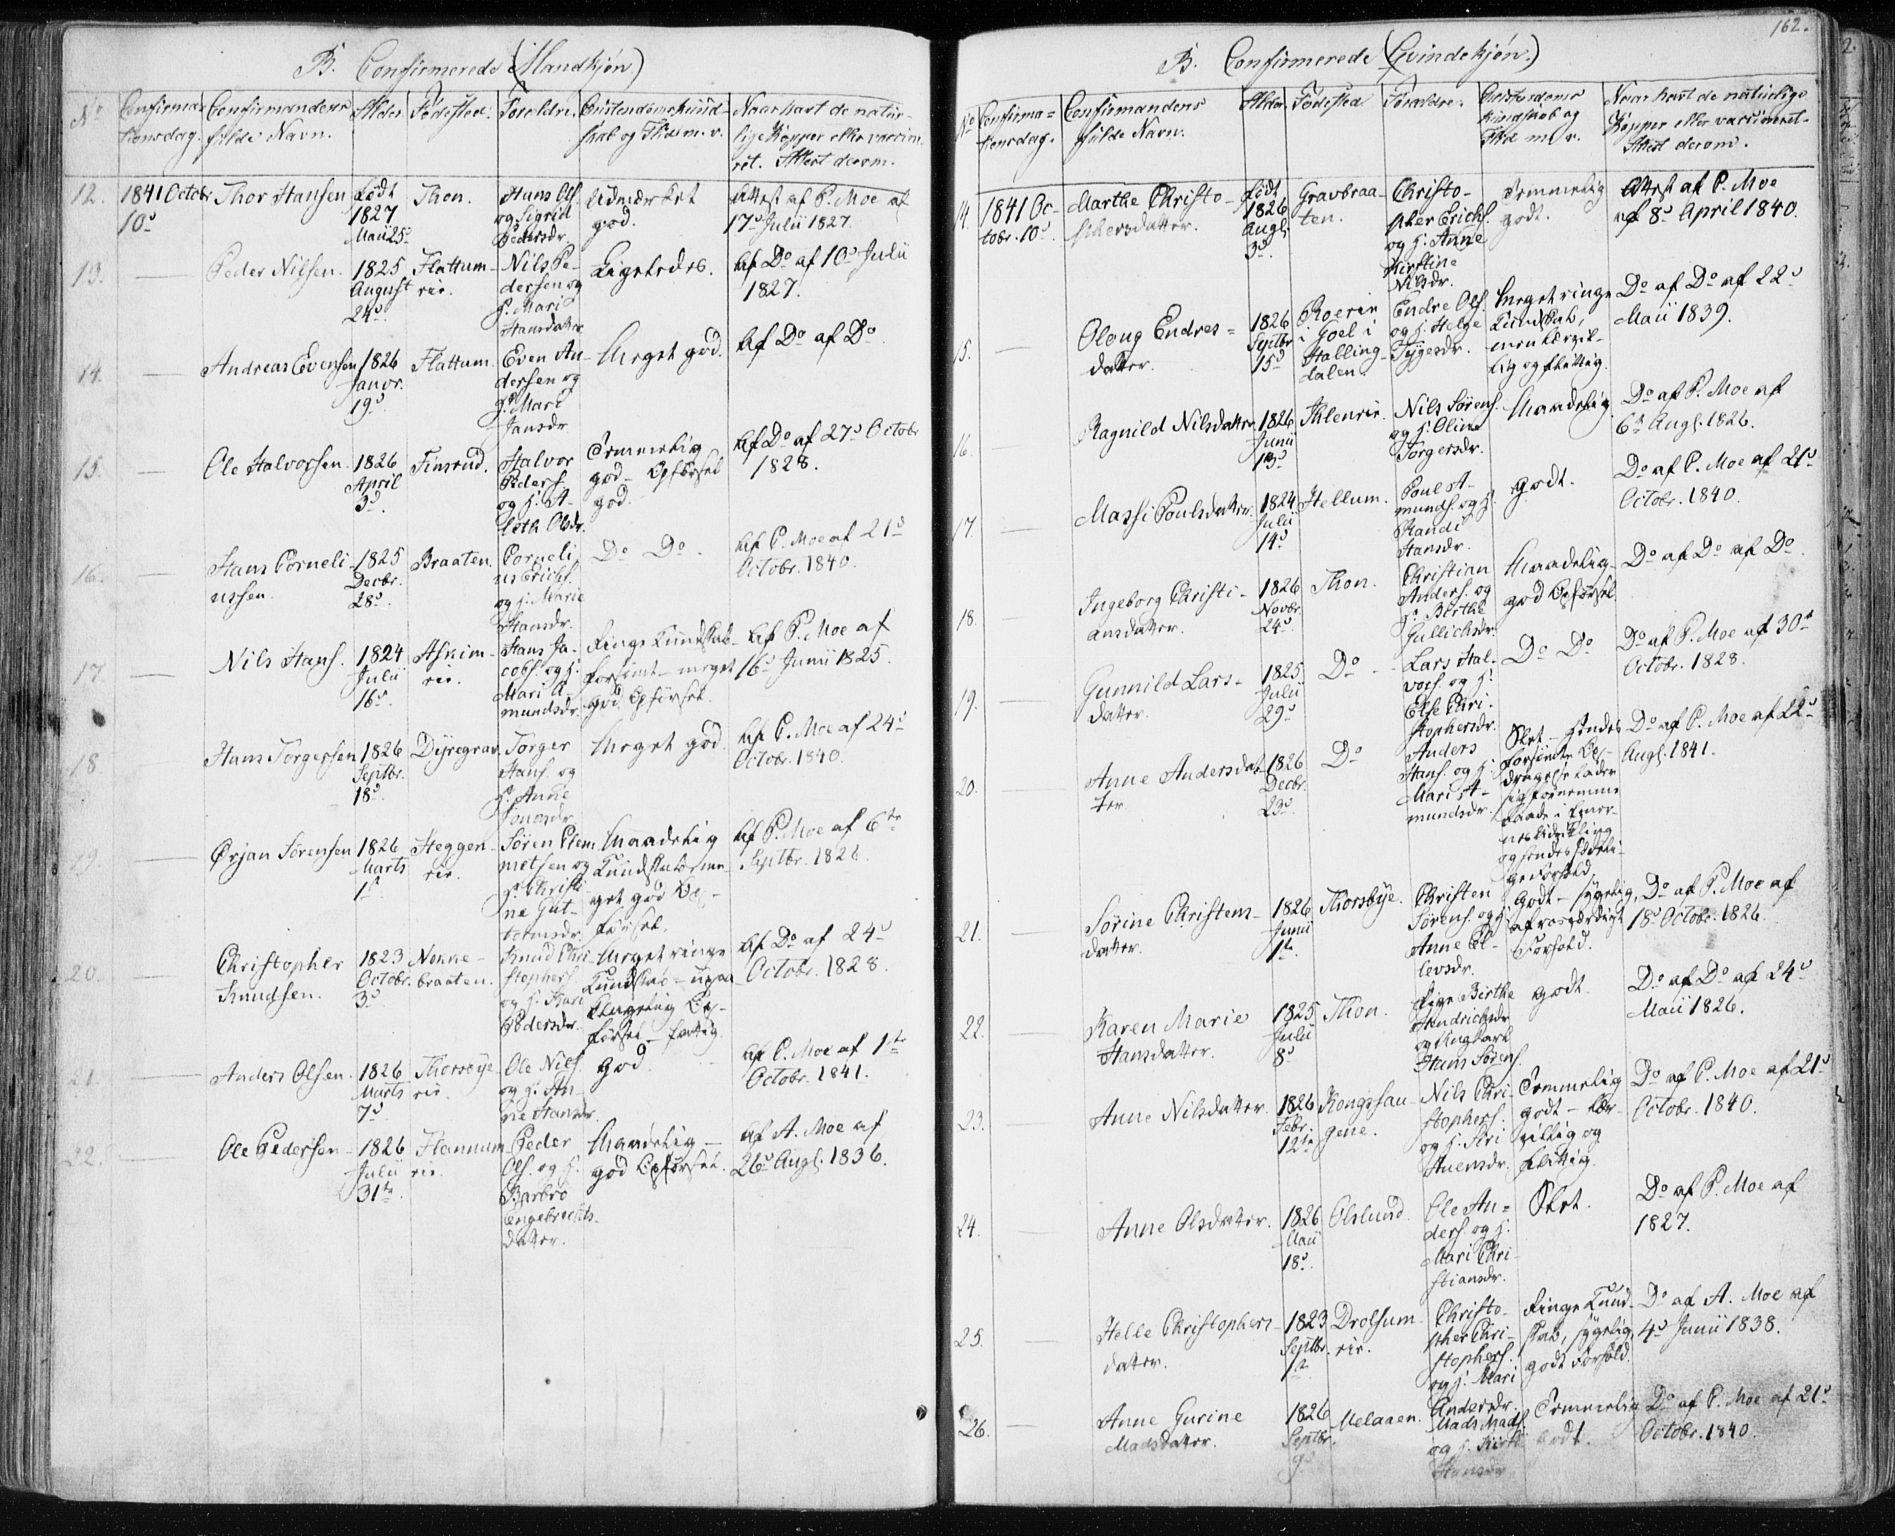 B. Confirmerede (Mandkjøn.)
No
Confirmationsdag.
Confirmandens fulde Navn.
Alder.
Fødested.
Forældre.
Naar havt de naturlige Kopper eller vaccineret. Attest derom.
12. 1841 Octobr 10de
Thor Hansen
født 1827 Maii 25de
Thon.
Hans Ols. og Sigrid Pedersdr.
Udmærket god.
Attest af P. Moe af 17de Julii 1827.
13.
Peder Nilsen.
1825 August 24de
Flattumeie.
Nils Pedersen og H. Mari Hansdatter
Ligeledes.
Af Do af 10de Julii 1827.
14.
Andreas Evensen
1826 Janvr. 19de
Flattum.
Even Andersen og H. Mari Jansdr.
Meget god.
Af Do af Do
15.
Ole Halvorsen.
1826 April 3de
Finsrud.
Halvor Peders.
Temmelig god – Opførsel god.
Af Do af 27de Octobr 1828.
16.
Hans Corneliussen.
1825 Decbr. 28de
Braaten.
Cornelius Erichs. og H. Marie Hansdr.
Do Do.
Af P. Moe af 21de Octobr. 1840.
17.
Nils Hans.
1824 Julii 16de
Askimeie.
Hans Jacobs. og H. Mari Amundsdr.
Ringe Kundskab – forsømt – meget god Opførsel.
Af P. Moe af 16de Junii 1825.
18.
Hans Torgersen
1826 Septbr. 18de
Dyregrav.
Torger Hans. og H. Anne
Meget god.
Af P. Moe af 24de Octobr. 1840.
19.
Ørjan Sørensen
1826 Marts 1ste
Steggeneie.
Søren Clemmetsen og H. Christine Guttormsdr.
Maadelig Kundskab – meget god Opførsel.
Af P. Moe af 6te Septbr. 1826.
20.
Christopher Knudsen.
1823 Octobr. 3de
Nonnebraaten.
Knud Christophers. og H. Kari Pedersdr.
Meget ringe Kundskab – upaaklagelig Opførsel – fattig.
Af Do af 24de Octobr. 1828.
21.
Anders Olsen.
1826 Marts 7de
Thorsbyeeie.
Ole Nils. og H. Anne Hansdr.
God.
Af P. Moe af 1ste Octobr. 1841.
22.
Ole Pedersen
1826 Julii 31te
Hannumeie.
Peder Ols. og H. Barbro Engebrechtsdatter.
Maadelig – god Opførsel.
Af A. Moe af 26de Augs. 1836.
162.
B. Confirmerede (Qvindekjøn.)
No
Confirmationsdag.
Confirmandens fulde Navn.
Alder.
Fødested
Forældre.
Christendoms Kundskab og Flid m. v.
Naar havt de naturlige Kopper eller vaccineret. Attest derom.
14. 1841 Octobr. 10de
Marthe Christophersdatter.
født 1826 Augs. 3de
Gravbraaten.
Christopher Erichs. og H. Anne Kirstine Nilsdr.
Temmelig godt.
Attest af P. Moe af 8de April 1840.
15.
Oloug Endresdatter.
1826 Septbr 15de
i Goel i Hallingdalen.
Endre Ols. og H. Helge
Meget ringe Kundskab, men lærvillig og flittig.
Do af Do af 22de Maii 1839.
16.
Ragnild Nilsdatter.
1826 Junii 13de
Ihleneie.
Nils Sørens. og H. Oline Torgersdr.
Maadelig.
Do af P. Moe af 6te Augs. 1826.
17.
Massi Poulsdatter.
1824 Julii 14de
Hellum.
Poul Amunds. og H. Randi Hansdr.
Godt.
Do af P. Moe af 21de Octobr. 1840.
18.
Ingeborg Christiansdatter.
1826 Novbr. 24de
Thon.
Christian Anders. og H. Birthe Gullichsdr.
Maadelig – god Opførsel.
Do af Do af Do.
19.
Gunnild Larsdatter.
1825 Julii 29de
Do
Lars Halvors. og H. Else Christophersdr.
Do Do
Do af P. Moe af 30te Octobr. 1828.
20.
Anne Andersdatter.
1826 Decbr. 23de
Do
Anders Hans. og H. Mari Amundsdr.
Slet – hendes forsømte
Do af P. Moe af 22de Augs. 1841.
21.
Sørine Christensdatter.
1826 Junii 1te
Thorsbye.
Christen Sørens. og H. Anne Elevsdr.
Godt – sygelig, af roesværdigt Forhold.
Do af P. Moe af 18de Octobr. 1826.
22.
Karen Marie Hansdatter.
1825 Julii 8de
Thon.
Pige Birthe Hendrichsdr. og Ungkarl Hans Sørens.
Godt.
Do af Do af 24de Maii 1826.
23.
Anne Nilsdatter.
1826 Febr. 12te
Kongshaugene.
Nils Christophers. og H. Siri
Temmelig godt – lærvillig og flittig.
Do af P. Moe af 21de Octobr. 1840.
24.
Anne Olsdatter.
1826 Maii 18de
Olslund.
Ole Anders. og H. Mari Christiansdr.
Slet.
Do af P. Moe af 1827.
25.
Helle Christophersdatter.
1823 Septbr.
Drolsumeie.
Christopher Christophers. og H. Mari Andersdr.
Ringe Kundskab, sygelig, godt Forhold.
Do af A. Moe af 4de Junii 1838.
26.
Anne Gurine Madsdatter.
1826 Septbr. 9de
Melaaen.
Mads Mads. og H. Kirsti Hansdr.
Temmelig godt.
Do af P. Moe af 21de Octobr. 1840.